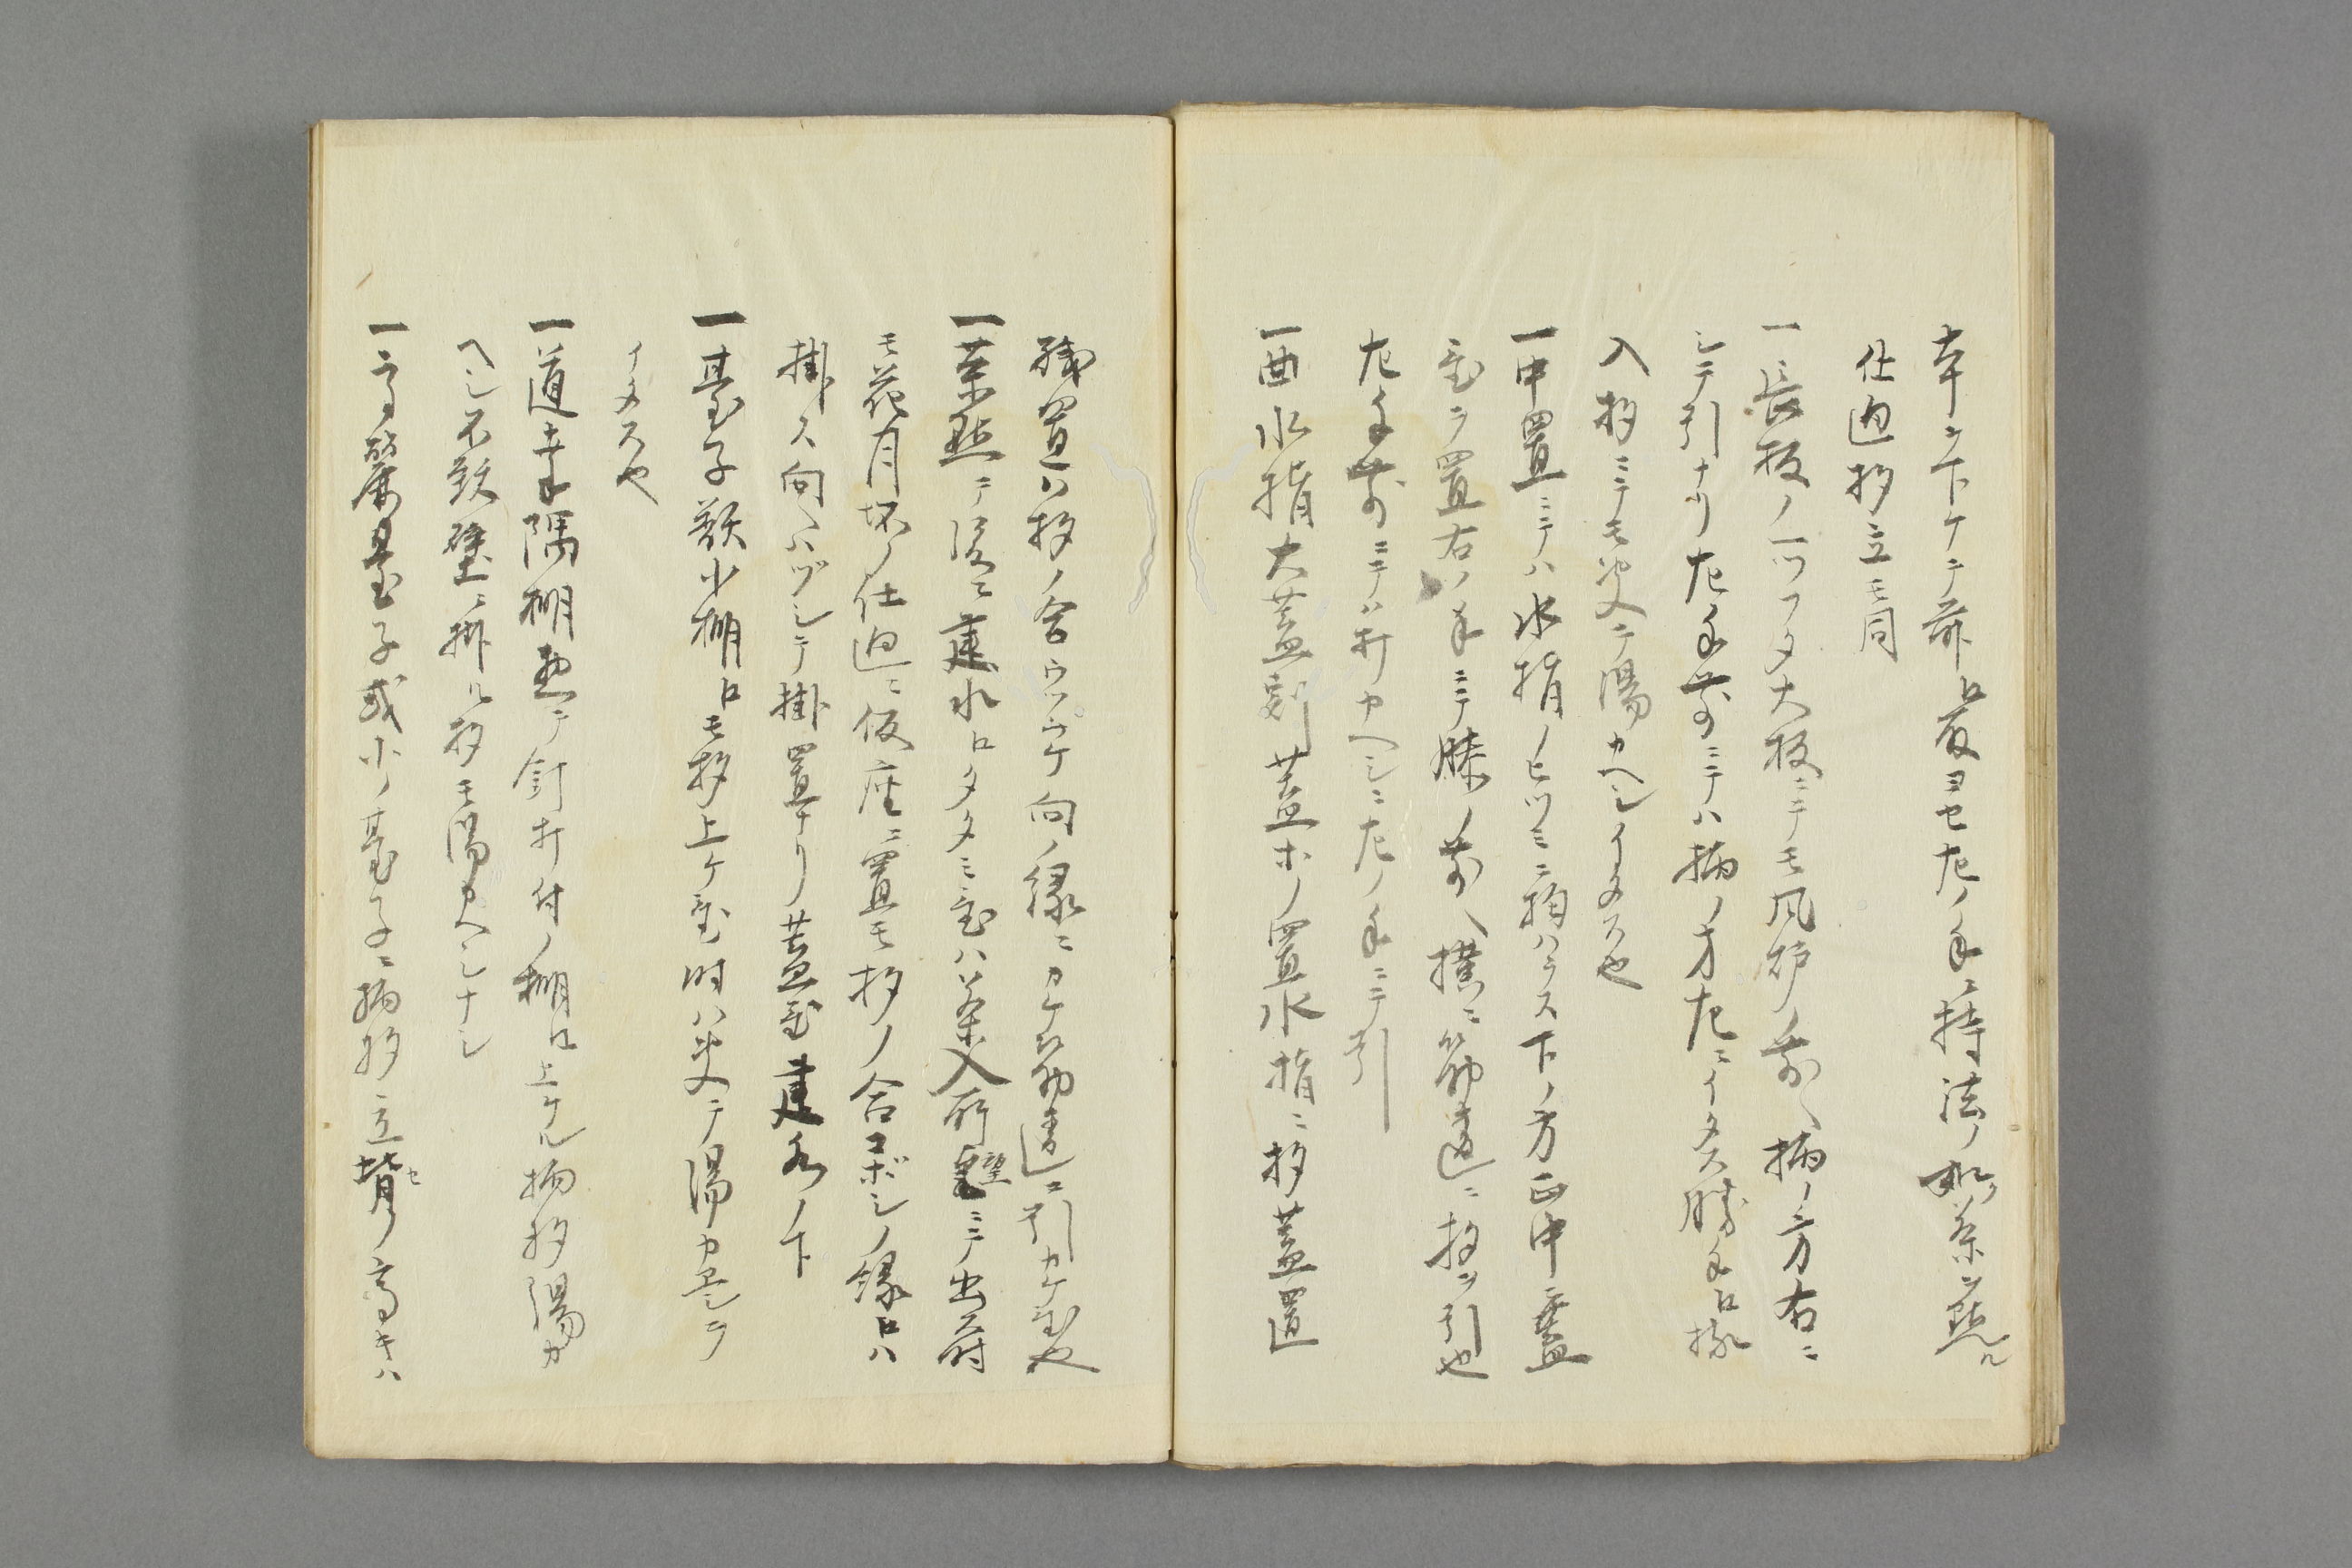 本ヲ下ケテ前ヘ取ヨセ左ノ手ニ持法ノ如ク茶ヲ点ル
仕廻杓立モ同
一長板ノ一ツフタ大板ニテモ風炉ノ前ヘ柄ノ方右ニ
シテ引ナリ左手前ニテハ柄ノ方左ニイタス勝手ヘ
入杓ニテモ突テ湯カヘシイタス也
一中置ニテハ水指ノヒツミニ拘ハラス下ノ方正中ニ蓋
置ヲ置右ノ手ニテ膝ノ前ヘ横ニ筋違ニ杓ヲ引也
左手前ニテハ打カヘシニ左ノ手ニテ引
一曲水指大蓋割蓋ホノ置水指ニ杓蓋置
残置ハ杓ノ合ウツケ向ノ縁ニカケ筋違ニ引カケ置也
一茶点テ後ニ建水ヘタタミ置ハ茶入所望ニテ出ス時
モ花月坏ノ仕廻ニ仮座ニ置モ杓ノ合コボシノ縁ヘハ
掛ス向ヘハヅシテ掛置ナリ蓋置建水ノ下
一臺子類小棚ヘモ杓上ケ置時ハ突テ湯カヘシヲ
イタス也
一道幸隅棚惣テ釘打付ノ棚ヘ上ケル柄杓湯カ
ヘシ不致壁ニ掛ル杓モ湯カヘシナシ
一高麗臺子或小ノ臺子ニ柄杓立背ノ高キハ